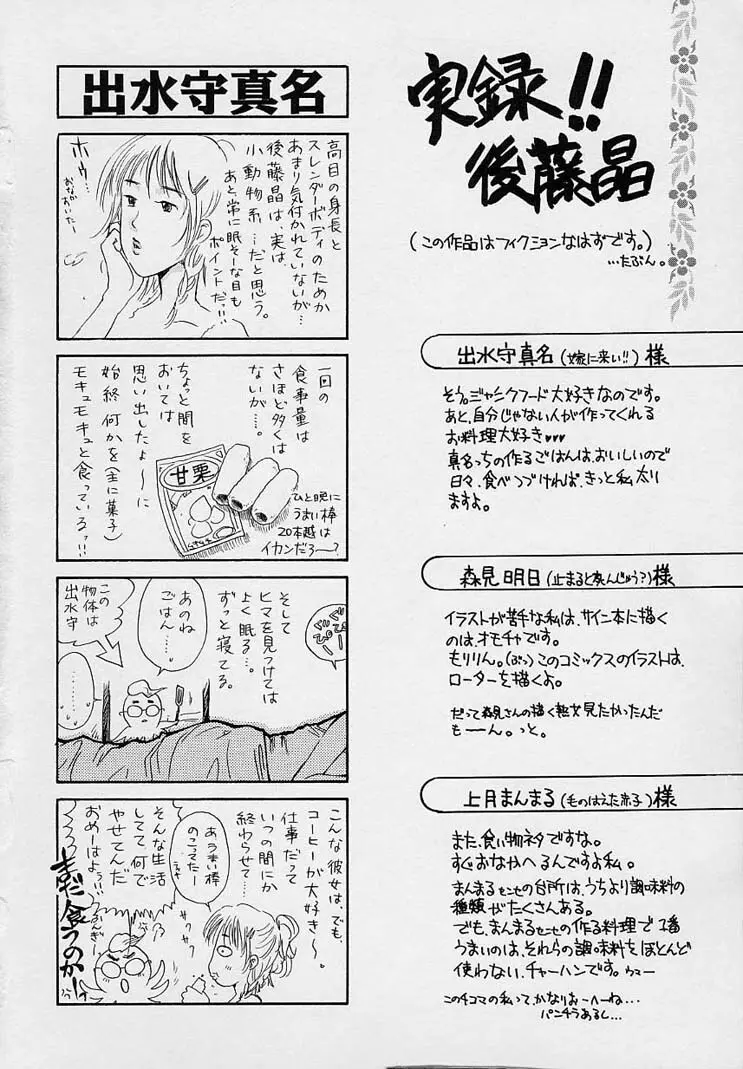 実録!!
後藤晶
(この作品はフィクションなはずです。)
…たぶん。
出水守真名(嫁に来い!!)様
そう。ジャンクフード大好きなのです。
あと、自分じゃない人が作ってくれる
お料理大好き♥♥♥
真名っちの作るごはんは、おいしいので
日々、食べつづければ、きっと私太り
ますよ。
森見明日(止まると死んじゅう?)様
イラストが苦手な私は、サイン本に描く
のは、オモチャです。
もりりん。(ぷっ)このコミックスのイラストは、
ローターを描くよ。
だって森見さんの描く熟女見たかったんだ
もーん。っと。
上月まんまる(毛のはえた赤子)様
また、食い物ネタですな。
すぐおなかへるんですよ私。
まんまるセンセの台所は、うちより調味料の
種類がたくさんある。
でも、まんまるセンセの作る料理で1番
うまいのは、それらの調味料をほとんど
使わない、チャーハンです。ウマー
この4コマの私って、かなりおーへーね…
パンチラあるし…
出水守真名
高目の身長と
スレンダーボディのためか
あまり気付かれていないが…
後藤晶は、実は、
小動物系…だと思う。
あと、常に眠そーな目も
ポイントだっ!!
ホゥ…
おなかおいたー
一回の
食事量は
さほど多くは
ないが…。
ちょっと間を
おいては
思い出したよ〜に
始終何かを(主に菓子)
モキュモキュと食っているっ!!!
甘栗
ひと晩に
うまい棒
20本越は
イカンだろ〜?
そして
ヒマを見つけては
よく眠る…。
ずっと寝てる。
ぐぴー
ぐぴー
あのね
ごはん……。
この
物体は
出水守
……
こんな彼女は、でも、
コーヒーが大好き〜。
仕事だって
いつの間にか
終わらせて…
あうまい棒
のこってたー
サクサク
そんな生活
してて、何で
やせてんだ
おめーはよぅ!!
まだ食うのかーっ